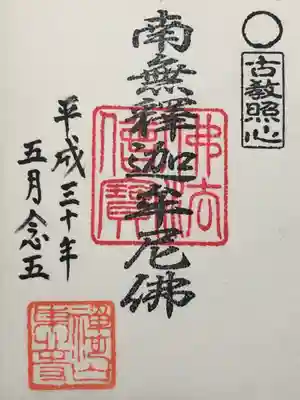 古教照心
南無釋迦牟尼佛
佛法僧寶
平成三十年
五月念五